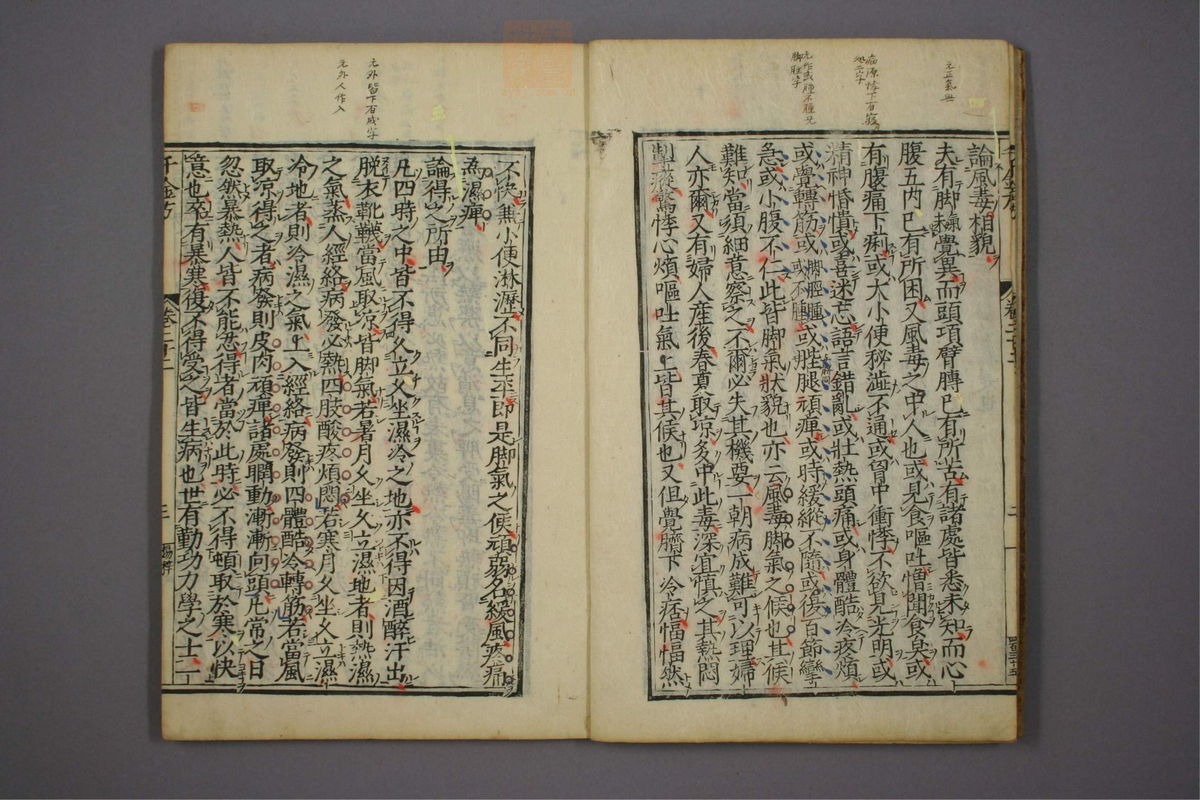 論風毒相貌
夫有脚未覺異而頭項臂膊已有所苦有諸處皆悉未知而心
腹五內已有所困又風毒之中人也或見食嘔吐憎聞食臭或
有腹痛下痢或大小便秘澁不通或胷中衝悸不欲見光明或
精神惛憒或喜迷忘語言錯亂或壯熱頭痛或身體酷冷疼煩
或覺轉筋或脚脛腫或不腫或䏶腿頑痺或時緩縱不隨或復百節攣
急或小腹不仁此皆脚氣狀貌也亦云風毒脚氣之候也其候
難知當須細意察之不爾必失其機要一朝病成難可以理婦
人亦爾又有婦人產後春夏取凉多中此毒深宜慎之其熱悶
掣瘲驚悸心煩嘔吐氣上皆其候也又但覺臍下冷痞愊愊然
不快兼小便淋瀝不同生平即是脚氣之候頑弱名緩風疼痛
為濕痺
論得之所由
凡四時之中皆不得久立久坐濕冷之地亦不得因酒醉汗出
脫衣靴韈當風取凉皆脚氣若暑月久坐久立濕地者則熱濕
之氣蒸人經絡病發必熱四肢酸疼煩悶若寒月久坐久立濕
冷地者則冷濕之氣上入經絡病發則四體酷冷轉筋若當風
取凉得之者病發則皮肉頑痺諸處瞤動漸漸向頭凡常之日
忽然暴熱人皆不能忍得者當於此時必不得頓取於寒以快
意也卒有暴寒復不得受之皆生病也世有勤功力學之士一